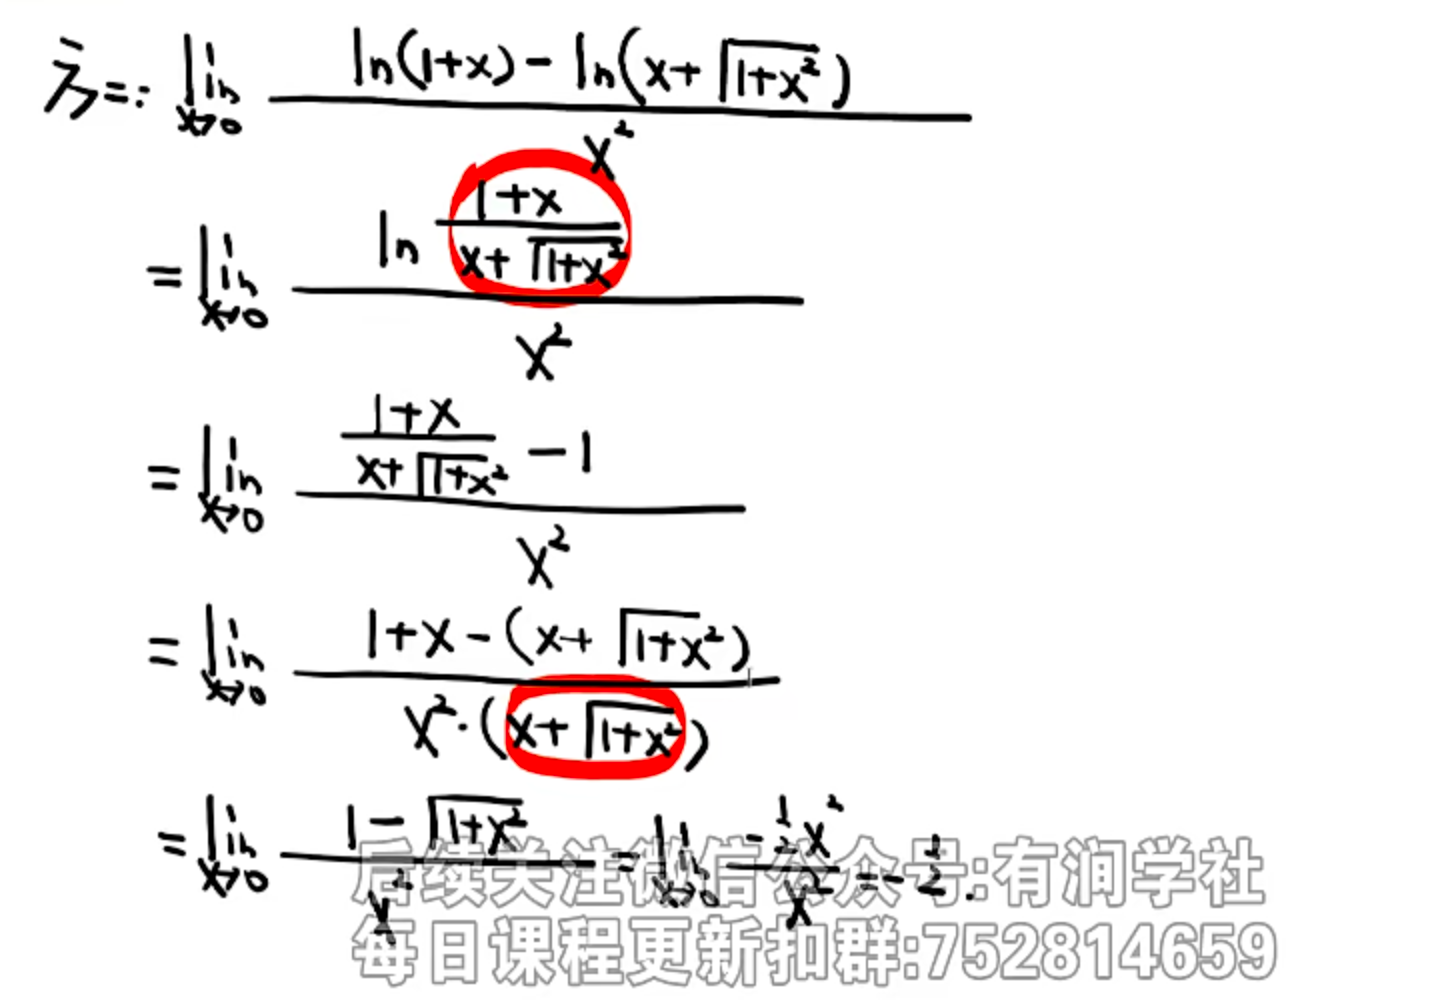 方二: lim x→0 (ln(1+x) - ln(x+√(1+x²))) / x²
= lim x→0 (ln (1+x)/(x+√(1+x²))) / x²
= lim x→0 ((1+x)/(x+√(1+x²)) - 1) / x²
= lim x→0 (1+x-(x+√(1+x²))) / (x²·(x+√(1+x²)))
= lim x→0 (1-√(1+x²)) / x² = lim x→0 (-½x²) / x² = -½.
后续关注微信公众号:有润学社
每日课程更新扣群:752814659